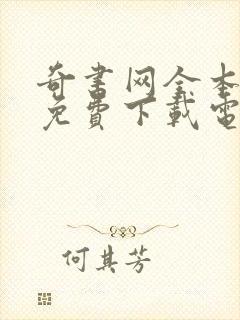 奇書网全本
免費下載電
何其芳